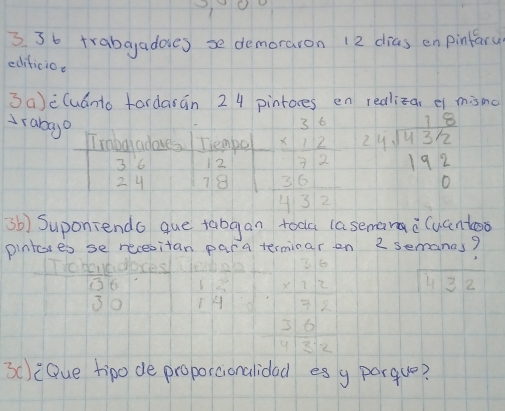 3. 36 trabajadores se demoraron 12 dias en pintar u
edificio.
3a) ¿Cuánto tardarán 24 pintores en realizar el mismo
trabajo
Trabajadores Tiempo
36 12
24 18
36
x 12
72
36
432
18
24√432
192
0
3b) Suponiendo que tabgan toda la semana ¿Cuantos
pintores se necesitan para terminar en 2 semanas?
Trabajadores Tiempo
36 12
30 14
36
x 12
72
36
432
432
3c) ¿Que tipo de proporcionalidad es y porque?